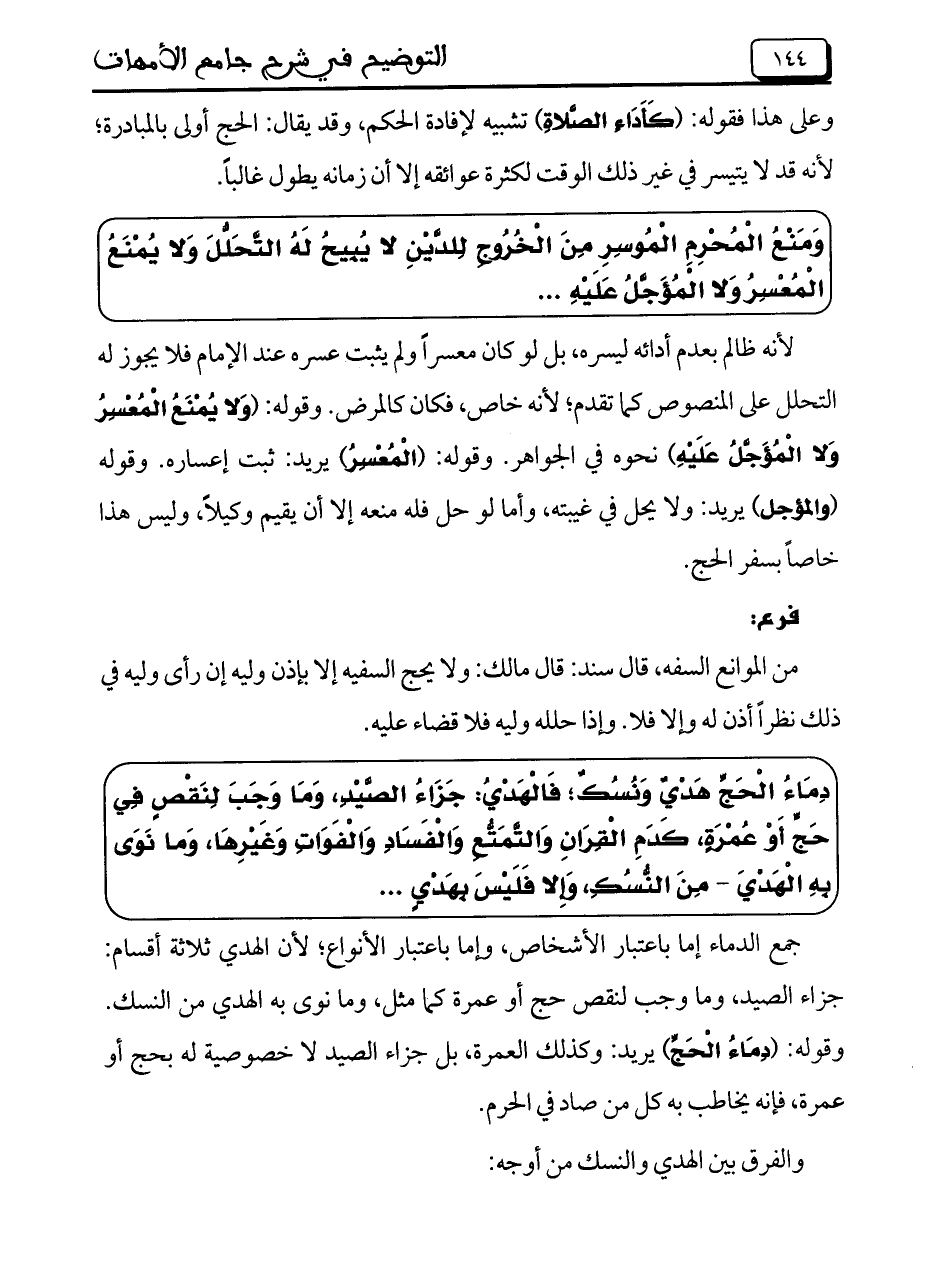 التوضيح في شرح جامع الأمهات ١٤٤
وعلى هذا فقوله: (كَأَدَاءِ الصَّلاةِ) تشبيه لإفادة الحكم، وقد يقال: الحج أولى بالمبادرة؛
لأنه قد لا يتيسر في غير ذلك الوقت لكثرة عوائقه إلا أن زمانه يطول غالباً.
وَمَنْعُ الْمُحْرِمِ الْمُوسِرِ مِنَ الْخُرُوجِ لِلدَّيْنِ لا يُبِيحُ لَهُ التَّحَلُّلَ وَلا يُمْنَعُ
الْمُعْسِرُ وَلا الْمُؤَجَّلُ عَلَيْهِ ...
لأنه ظالم بعدم أدائه ليسره، بل لو كان معسراً ولم يثبت عسره عند الإمام فلا يجوز له
التحلل على المنصوص كما تقدم؛ لأنه خاص، فكان كالمرض. وقوله: (وَلا يُمْنَعُ الْمُعْسِرُ
وَلا الْمُؤَجَّلُ عَلَيْهِ) نحوه في الجواهر. وقوله: (الْمُعْسِرُ) يريد: ثبت إعساره. وقوله
(والمؤجل) يريد: ولا يحل في غيبته، وأما لو حل فله منعه إلا أن يقيم وكيلاً، وليس هذا
خاصاً بسفر الحج.
فرع:
من الموانع السفه، قال سند: قال مالك: ولا يحج السفيه إلا بإذن وليه إن رأى وليه في
ذلك نظراً أذن له وإلا فلا. وإذا حلله وليه فلا قضاء عليه.
دِمَاءُ الْحَجِّ هَدْيٌ وَنُسُكٌ؛ فَالْهَدْيُ: جَزَاءُ الصَّيْدِ، وَمَا وَجَبَ لِنَقْصٍ فِي
حَجٍّ أَوْ عُمْرَةٍ، كَدَمِ الْقِرَانِ وَالتَّمَتُّعِ وَالْفَسَادِ وَالْفَوَاتِ وَغَيْرِهَا، وَمَا نَوَى
بِهِ الْهَدْيَ - مِنَ النُّسُكِ، وَإِلا فَلَيْسَ بِهَدْيٍ ...
جمع الدماء إما باعتبار الأشخاص، وإما باعتبار الأنواع؛ لأن الهدي ثلاثة أقسام:
جزاء الصيد، وما وجب لنقص حج أو عمرة كما مثل، وما نوى به الهدي من النسك.
وقوله: (دِمَاءُ الْحَجِّ) يريد: وكذلك العمرة، بل جزاء الصيد لا خصوصية له بحج أو
عمرة، فإنه يخاطب به كل من صاد في الحرم.
والفرق بين الهدي والنسك من أوجه: